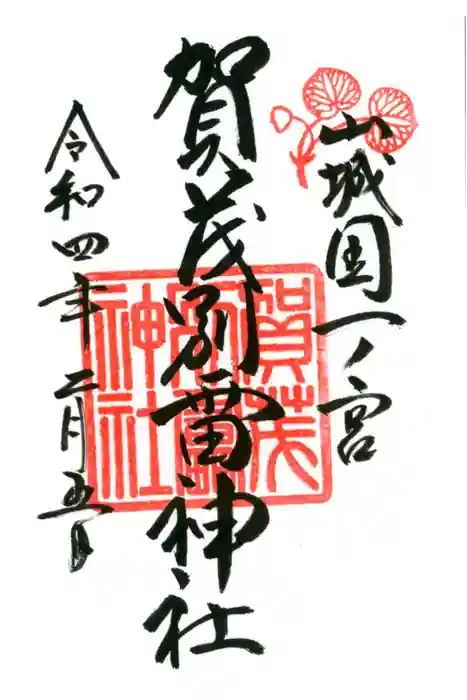 山城国一ノ宮
賀茂別雷神社
令和四年二月五日
賀茂
別雷
神社